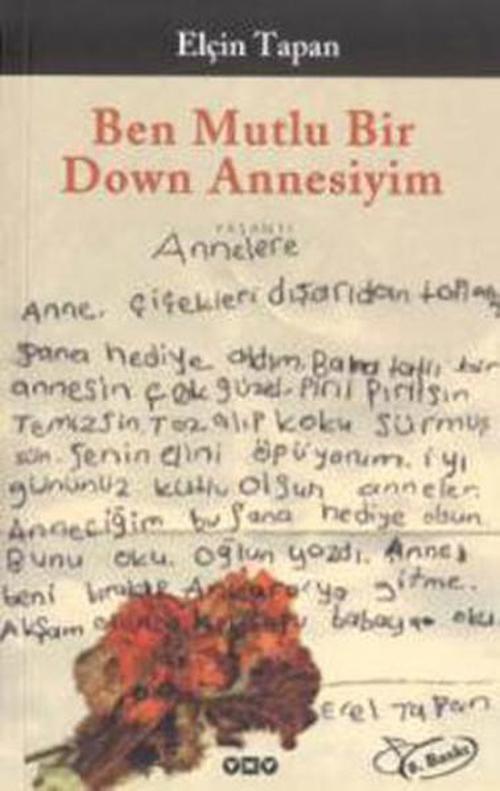 Elçin Tapan
Ben Mutlu Bir
Down Annesiyim
YAŞANTI
Annelere
Anne, çiçekleri dışarıdan
Şana hediye aldım. Bana tatlı bir
annesin çok güzel. Pırıl Pırılsın
Temizsin. Toz alıp koku sürmüş
sün. Şenin elini öpüyorum. iyi
gününüz kutlu olsun anneler.
Anneciğim bu Şana hediye olsun
Bunu oku. oğlun yazdı. Anne
beni Ankara'ya gitme.
Akşam babaya oku
Erel Tapan
YKY
8. Baskı